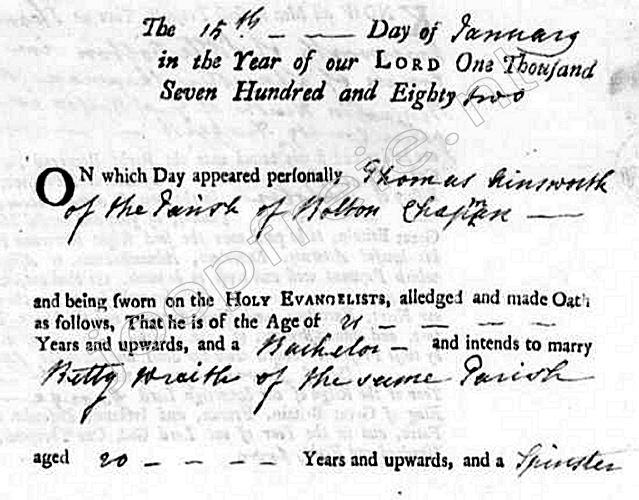 The 15th - - Day of January
in the Year of our LORD One Thouſand
Seven Hundred and Eighty two
ON which Day appeared perſonally Thomas Ainsworth
of the Parish of Bolton Chapman
and being ſworn on the HOLY EVANGELISTS, alledged and made Oath
as follows, That he is of the Age of 21 - - - -
Years and upwards, and a Bachelor - and intends to marry
Betty Wraith of the same Parish
aged 20 - - - - Years and upwards, and a Spinster